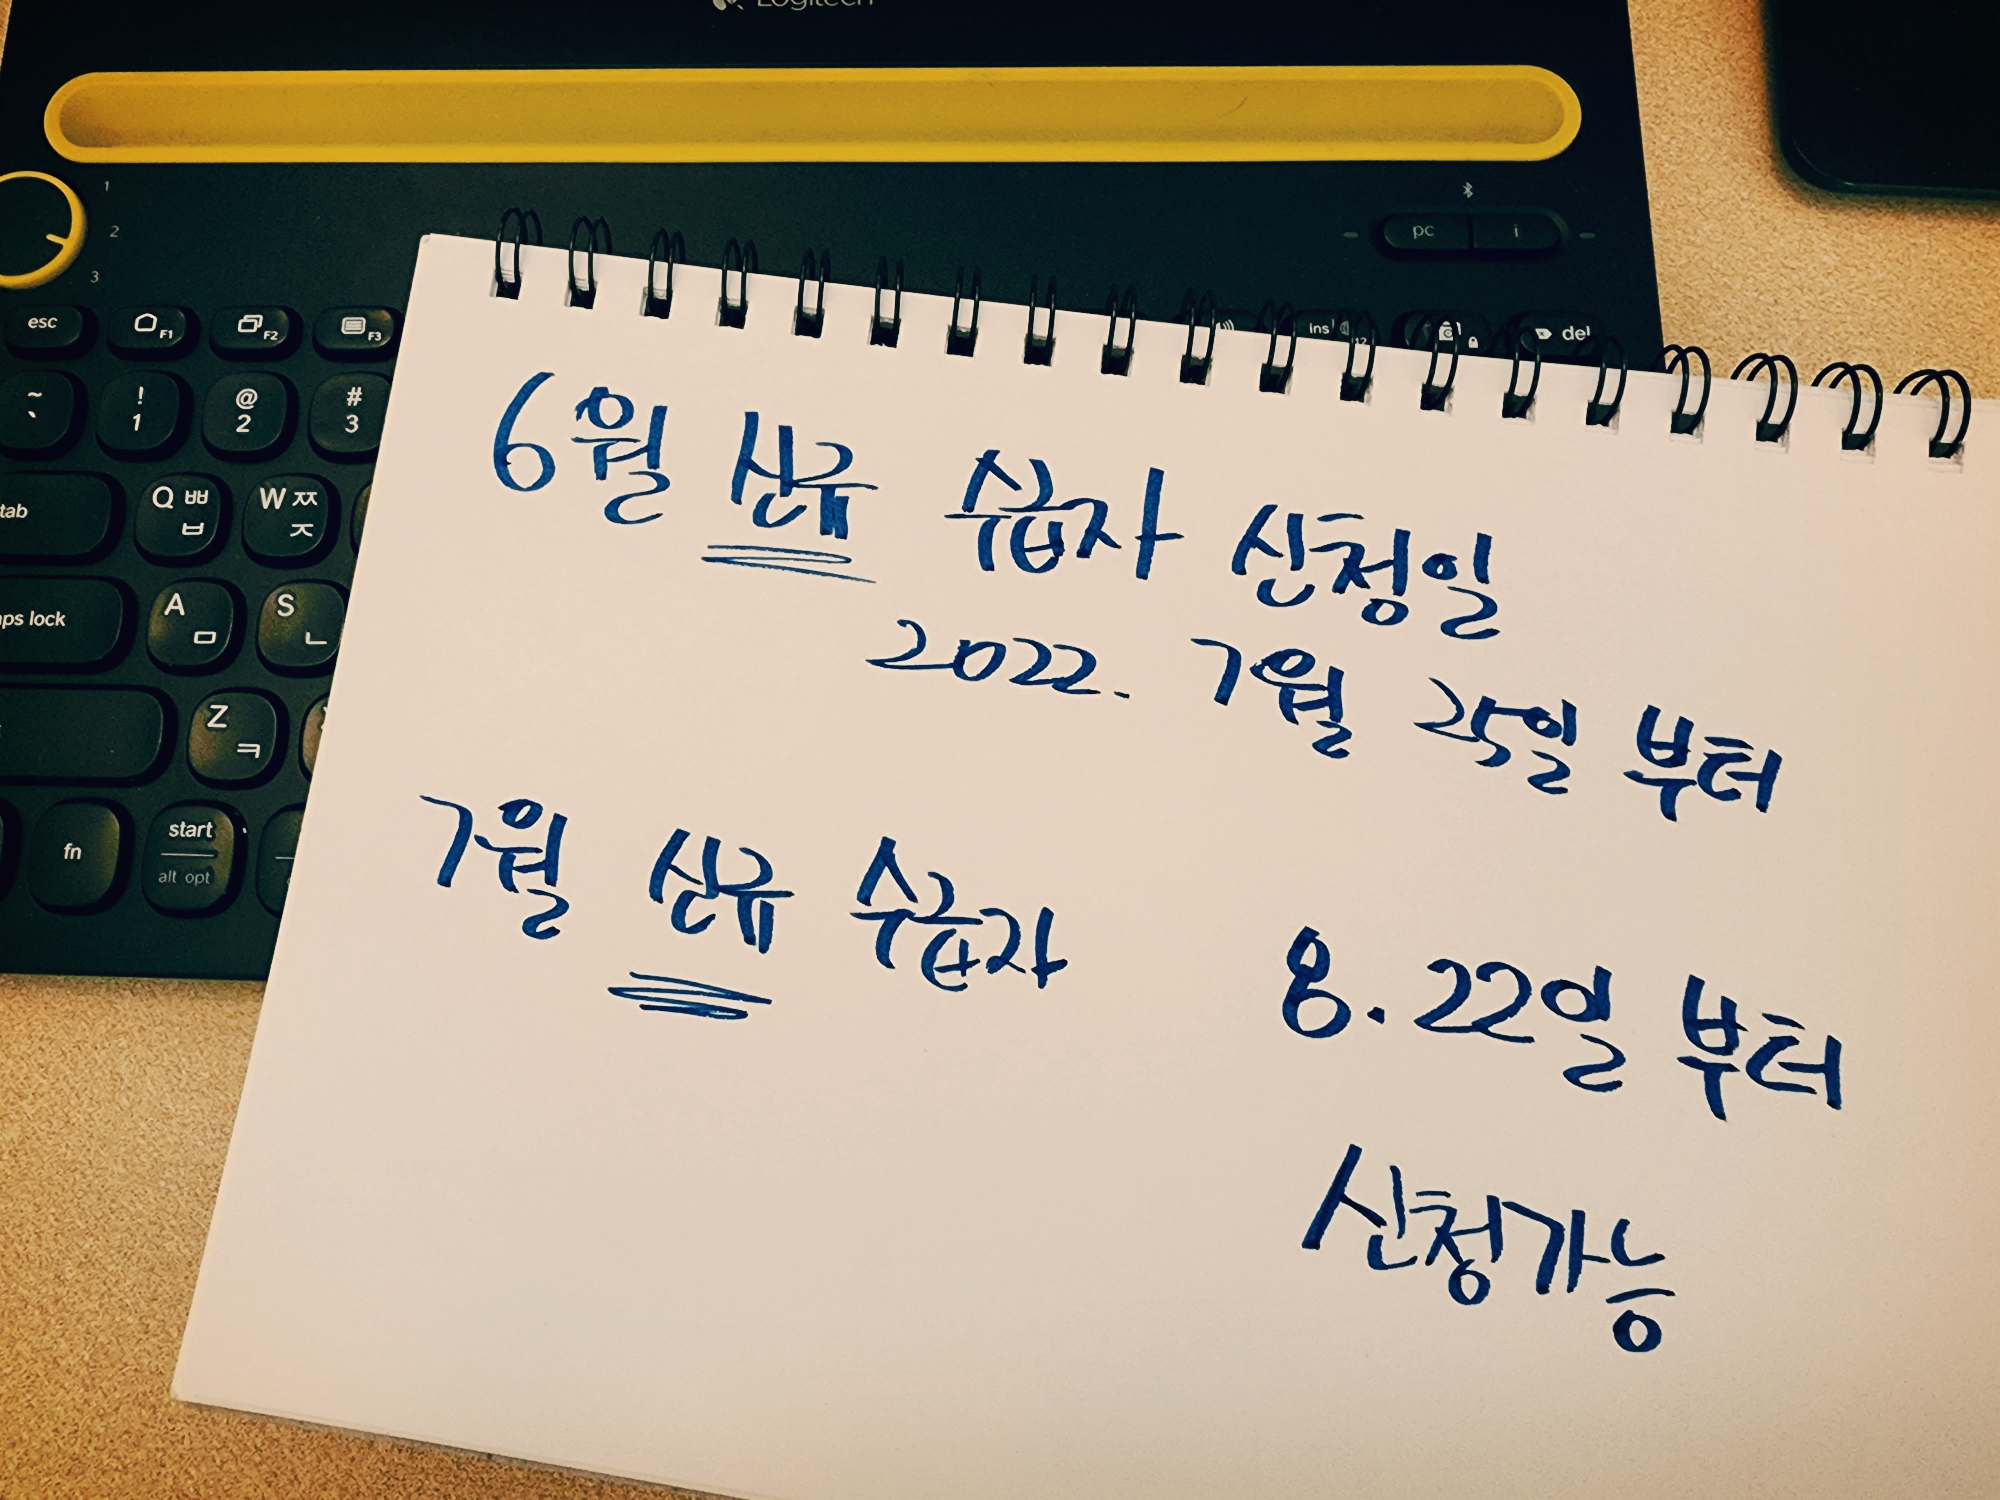 Logitech
1
2
3
pc i
esc F1 F2 F3 ins 12 del
~ ` ! 1 @ 2 # 3
tab Q ㅃ ㅂ W ㅉ ㅈ
aps lock A ㅁ S ㄴ
Z ㅋ
fn start alt opt
6월 신규 수급자 신청일
2022. 7월 25일 부터
7월 신규 수급자 8.22일 부터
신청가능